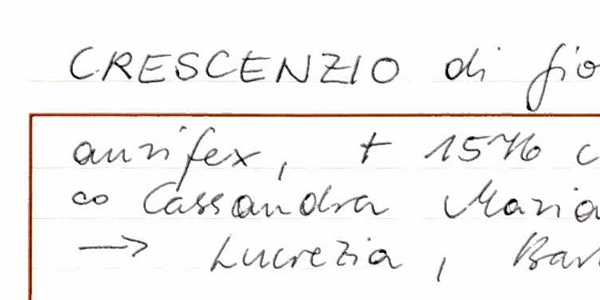 CRESCENZIO di fio
aurifex, † 1576 c
∞ Cassandra Maria
→ Lucrezia, Bar